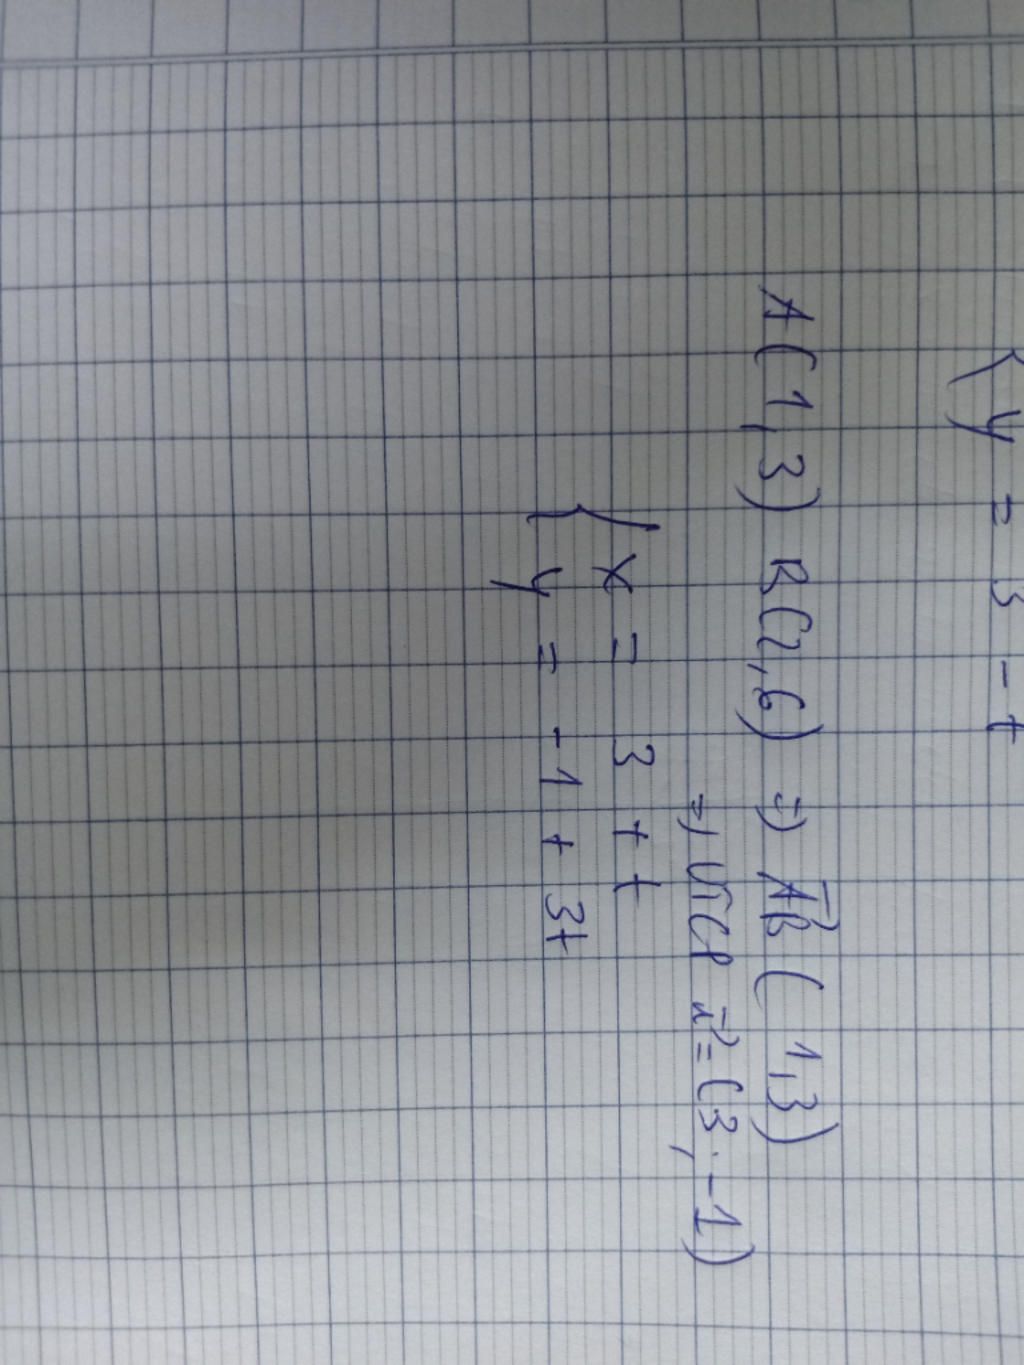 { y = 3 - t
A(1,3) B(2,6) => AB→ (1,3)
=> VTCP u→ = (3, -1)
{ x = 3 + t
y = -1 + 3t